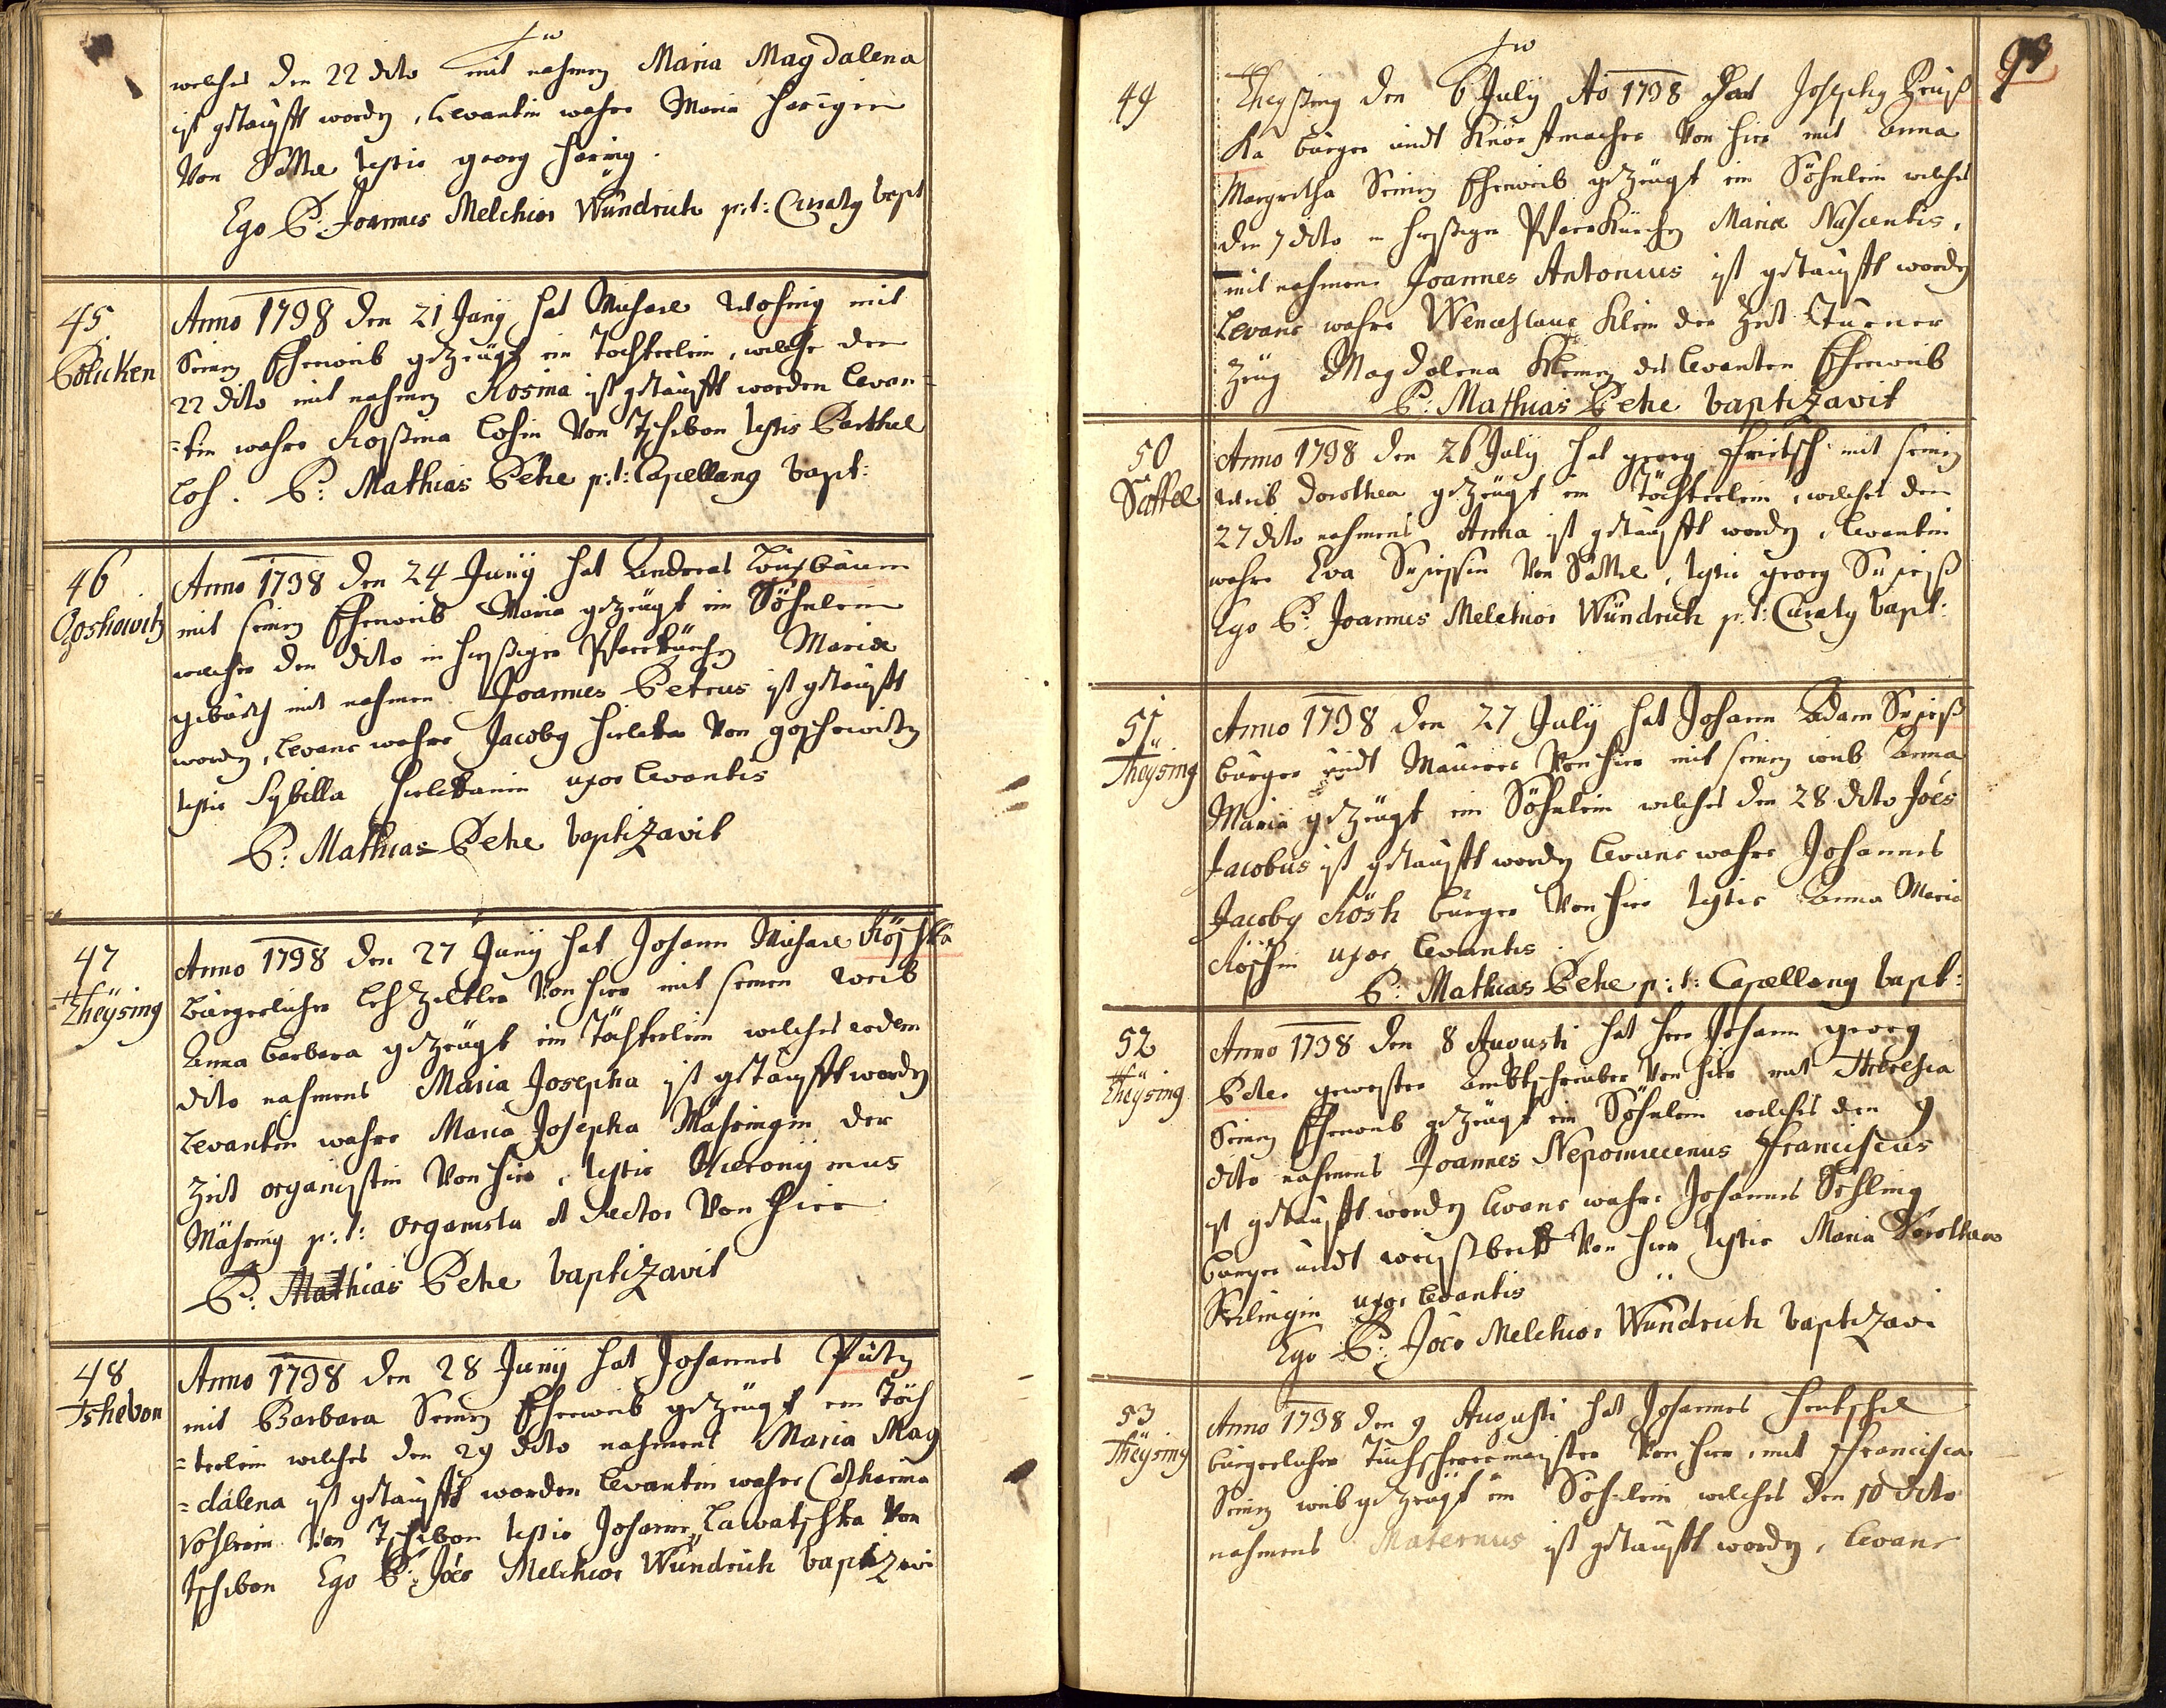 welches den 22 dito mit nahmen Maria Magdalena
ist getaufft worden, Levantin wahre Maria
Von Sattel testis georg Hering.
Ego P: Joannes Melchior Wündrich p:t: Curatg bapt
45
Poliken
Anno 1738 den 21 Juny hat Michael mit
Seinen Eheweib gezeügt ein Töchterlein, welche den
22 dito mit nahmen Rosina ist getaufft worden Levan=
=tin wahre Rossina Losin Von Tschebon testis Barthel
Los. P: Mathias Petze p:t: Capellang bapt:
46
Goshowitz
Anno 1738 den 24 Juny hat Anderas
mit seinen Eheweib Maria gezeügt ein Söhnlein
welches den dito in hießiger Pfarrkürchen Mariae
geburth mit nahmen Joannes Petrus ist getaufft
worden, Levans wahre Jacobg Von goschowitz
testis Sybilla uxor Levantis
P: Mathias Petze baptizavit
47
Theÿsing
Anno 1738 den 27 Juny hat Johann Michael Röschka
bürgerlicher Von hier mit seinen Weib
Anna Barbara gezeügt ein Töchterlein welches eodem
dito nahmens Maria Josepha ist getaufft worden
Levantin wahre Maria Josepha Mähringin der
Zeit organistin Von hier, testis Hieronymus
Mähring p:t: organista et Rector Von hier
P: Mathias Petze baptizavit
48
Tshebon
Anno 1738 den 28 Juny hat Johannes Pütz
mit Barbara Seinen Eheweib gezeügt ein Töch
=terlein welches den 29 dito nahmens Maria Mag
=dalena ist getaufft worden Levantin wahre Catharina
Von Tschebon testis Johann Lawatschka Von
Tschebon Ego P: Jões Melchior Wündrich baptizavi
93
49
Theyßing den 6 July Ao 1738 hat Josephg
ka bürger undt Von hier mit Anna
Margretha Seinen Eheweib gezeügt ein Söhnlein welches
den 7 dito in hießiger Pfarrkürchen Mariae Nascentis,
mit nahmen Joannes Antonius ist getaufft worden
Levans wahre Wenceslaus Klein der Zeit Turner
Zeüg Magdalena Kleinin des Levanten Eheweib
P: Mathias Petze baptizavit
50
Sattel
Anno 1738 den 26 July hat georg Fritsch mit seinen
Weib Dorothea gezeügt ein Töchterlein, welches den
27 dito nahmens Anna ist getaufft worden, Levantin
wahre Eva Von Sattel, testis georg
Ego P: Joannes Melchior Wündrich p:t: Curatg bapt:
51
Theÿsing
Anno 1738 den 27 July hat Johann Adam
bürger undt Maurer Von hier mit seinen weib Anna
Maria gezeügt ein Söhnlein welches den 28 dito Jões
Jacobus ist getaufft worden Levans wahre Johannes
Jacobg Rösch bürger Von hier testis Anna Maria
Röschin uxor Levantis
P: Mathias Petze p:t: Capellang bapt:
52
Theÿsing
Anno 1738 den 8 Augusti hat Herr Johann georg
Peter gewester Ambtschreiber Von hier mit Theresia
Seinen Eheweib gezeügt ein Söhnlein welches den 9
dito nahmens Joannes Nepomucenus Franciscus
ist getaufft worden Levans wahre Johannes Sehling
bürger undt weißbeck Von hier testis Maria Dorothea
Sehlingin uxor Levantis
Ego P: Jões Melchior Wündrich baptizavi
53
Theÿsing
Anno 1738 den 9 Augusti hat Johannes Hentschel
bürgerlicher Tuchscherermeyster Von hier, mit Francisca
Seinen weib gezeügt ein Söhnlein welches den 10 dito
nahmens Maternus ist getaufft worden, Levans